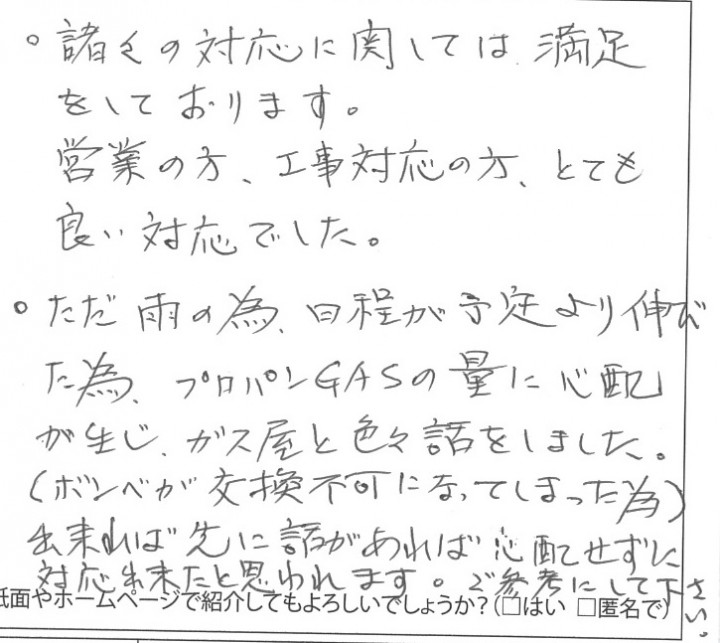 。諸々の対応に関しては満足
をしております。
営業の方、工事対応の方、とても
良い対応でした。
。ただ雨の為、日程が予定より伸び
た為、プロパンGASの量に心配
が生じ、ガス屋と色々話をしました。
（ボンベが交換不可になってしまった為）
出来れば先に話があれば心配せずに
対応出来たと思われます。ご参考にして下さい。
紙面やホームページで紹介してもよろしいでしょうか？（□はい □匿名で）